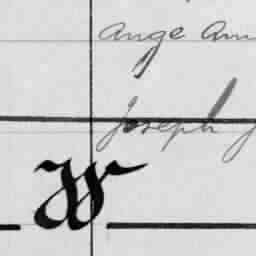 Ange Ann
Joseph J
W